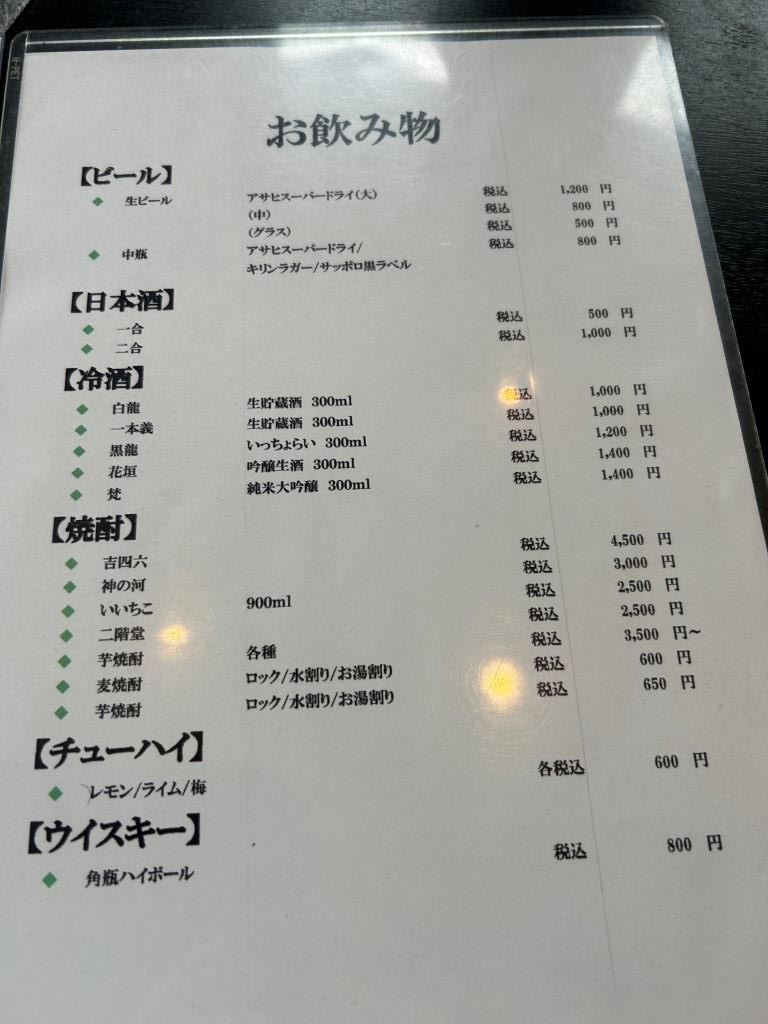 お飲み物
【ビール】
◆ 生ビール アサヒスーパードライ(大) 税込 1,200 円
(中) 税込 800 円
(グラス) 税込 500 円
◆ 中瓶 アサヒスーパードライ/ 税込 800 円
キリンラガー/サッポロ黒ラベル
【日本酒】
◆ 一合 税込 500 円
◆ 二合 税込 1,000 円
【冷酒】
◆ 白龍 生貯蔵酒 300ml 税込 1,000 円
◆ 一本義 生貯蔵酒 300ml 税込 1,000 円
◆ 黒龍 いっちょらい 300ml 税込 1,200 円
◆ 花垣 吟醸生酒 300ml 税込 1,400 円
◆ 梵 純米大吟醸 300ml 税込 1,400 円
【焼酎】
◆ 吉四六 税込 4,500 円
◆ 神の河 税込 3,000 円
◆ いいちこ 900ml 税込 2,500 円
◆ 二階堂 税込 2,500 円
◆ 芋焼酎 各種 税込 3,500 円～
◆ 麦焼酎 ロック/水割り/お湯割り 税込 600 円
◆ 芋焼酎 ロック/水割り/お湯割り 税込 650 円
【チューハイ】
◆ レモン/ライム/梅 各税込 600 円
【ウイスキー】
◆ 角瓶ハイボール 税込 800 円